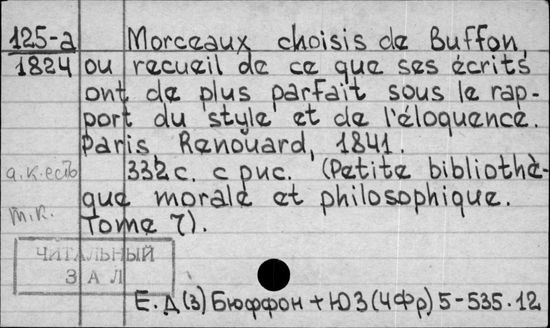 125-а
1824
Morceaux choisis de Buffon,
ou recueil de ce que ses écrits
ont de plus parfait sous le rap-
port du style et de l'éloquence.
Paris Renouard, 1841.
332 с. с рис. (Petite bibliothè-
que morale et philosophique.
Tome 7).
а.к.есть
m.к.
ЧИТАЛЬНЫЙ
ЗАЛ
Е.Д(3) Бюффон + Ю3(4Фр) 5-535.12